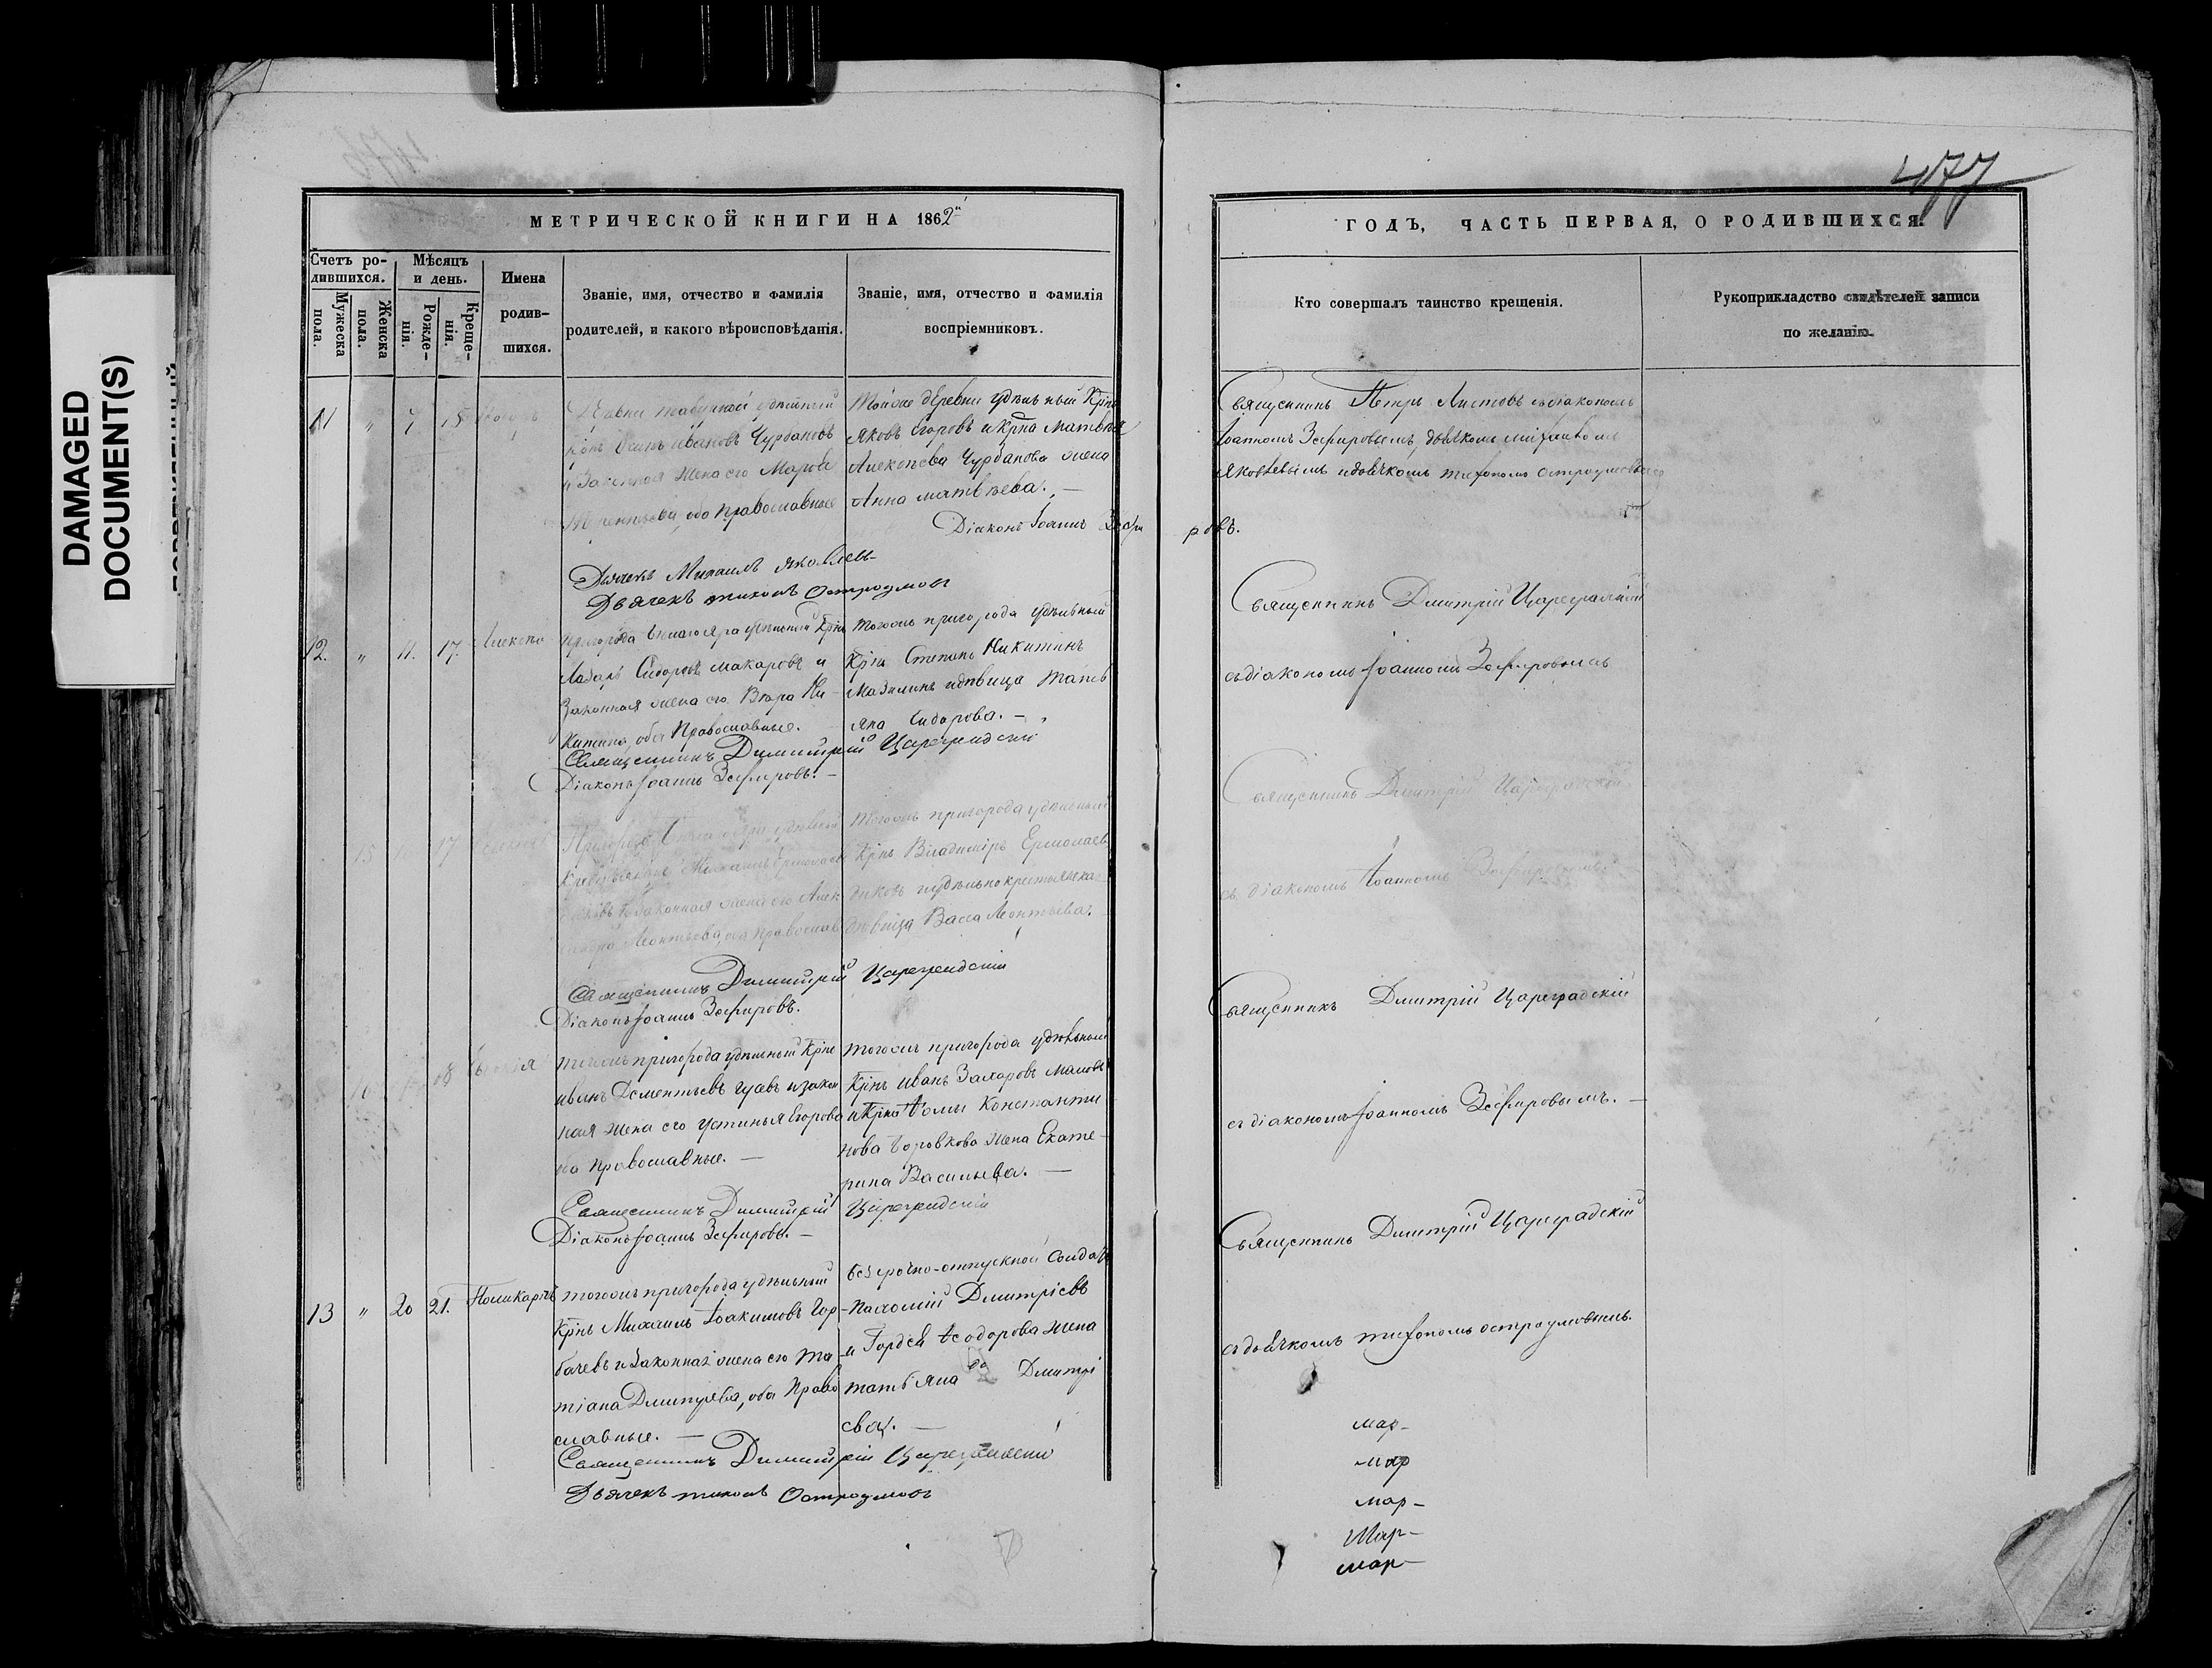 477
DAMAGED
DOCUMENT(S)
МЕТРИЧЕСКОЙ КНИГИ НА 1862й
Счетъ ро-
дившихся.
Мужеска
пола.
Женска
пола.
Мѣсяцъ
и день.
Рожде-
нія.
Креще-
нія.
Имена
родив-
шихся.
Званіе, имя, отчество и фамилія
родителей, и какого вѣроисповѣданія.
Званіе, имя, отчество и фамилія
воспріемниковъ.
11 " 7 15
удѣльный
Ивановъ Чурбановъ
и Законная жена его
оба Православные
Тойже деревни удѣльный Крнъ
Яковъ Егоровъ и Крна Матвѣя
Алексѣева Чурбанова жена
Анна Матвѣева. —
Діаконъ Іоаннъ Зефи
ровъ.
Дьячекъ Михаилъ Яковлевъ
Дьячекъ Тихонъ Остроумовъ
12. " 11. 17. Алексѣй
пригорода Бѣлаго Яра удѣльный Крнъ
Лазарь Сидоровъ Макаровъ и
Законная жена его Вѣра Ни-
китина, оба Православные.
Тогожъ пригорода удѣльный
Крнъ Степанъ Никитинъ
дѣвица Татья
на Сидорова. —
Священникъ Димитрій Цареградскій
Діаконъ Іоаннъ Зефировъ. —
15 17
Пригорода Бѣлаго Яра удѣльный
Михаилъ Ермолаевъ
Законная жена его Алек
Леонтьева, оба Православ
Тогожъ пригорода удѣльный
Крнъ Владиміръ Ермолаевъ
удѣльнокрестьянская
дѣвица Васса Леонтьева.
Священникъ Димитрій Цареградскій
Діаконъ Іоаннъ Зефировъ.
16 18
Тогожъ пригорода удѣльный Крнъ
Иванъ Дементьевъ Гусевъ и закон
ная жена его Устинья Егорова
оба Православные. —
Тогожъ пригорода удѣльный
Крнъ Иванъ Захаровъ
и Крна Ѳомы Константи
нова Боровкова жена Екате-
рина Васильева. —
Священникъ Димитрій Цареградскій
Діаконъ Іоаннъ Зефировъ. —
13 " 20 21. Поликарпъ
Тогожъ пригорода удѣльный
Крнъ Михаилъ Іоакимовъ Гор-
бачевъ и Законная жена его Та-
тіана Дмитріева, оба Право
славные. —
Безсрочно-отпускной Солдатъ
Пахомій Дмитріевъ
и Гордея Ѳеодорова жена
Татьяна Дмитрі
ева. —
Священникъ Димитрій Цареградскій
Дьячекъ Тихонъ Остроумовъ
ГОДЪ, ЧАСТЬ ПЕРВАЯ, О РОДИВШИХСЯ.
Кто совершалъ таинство крещенія.
Рукоприкладство свидѣтелей записи
по желанію.
Священникъ Петръ Листовъ съ діакономъ
Іоанномъ Зефировымъ, дьячкомъ Михаиломъ
Яковлевымъ и дьячкомъ Тихономъ Остроумовымъ
Священникъ Дмитрій Цареградскій
съ діакономъ Іоанномъ Зефировымъ
Священникъ Дмитрій Цареградскій
съ діакономъ Іоанномъ Зефировымъ.
Священникъ Дмитрій Цареградскій
съ діакономъ Іоанномъ Зефировымъ. —
Священникъ Дмитрій Цареградскій
съ дьячкомъ Тихономъ Остроумовымъ.
мар-
мар
мар-
Мар-
мар-